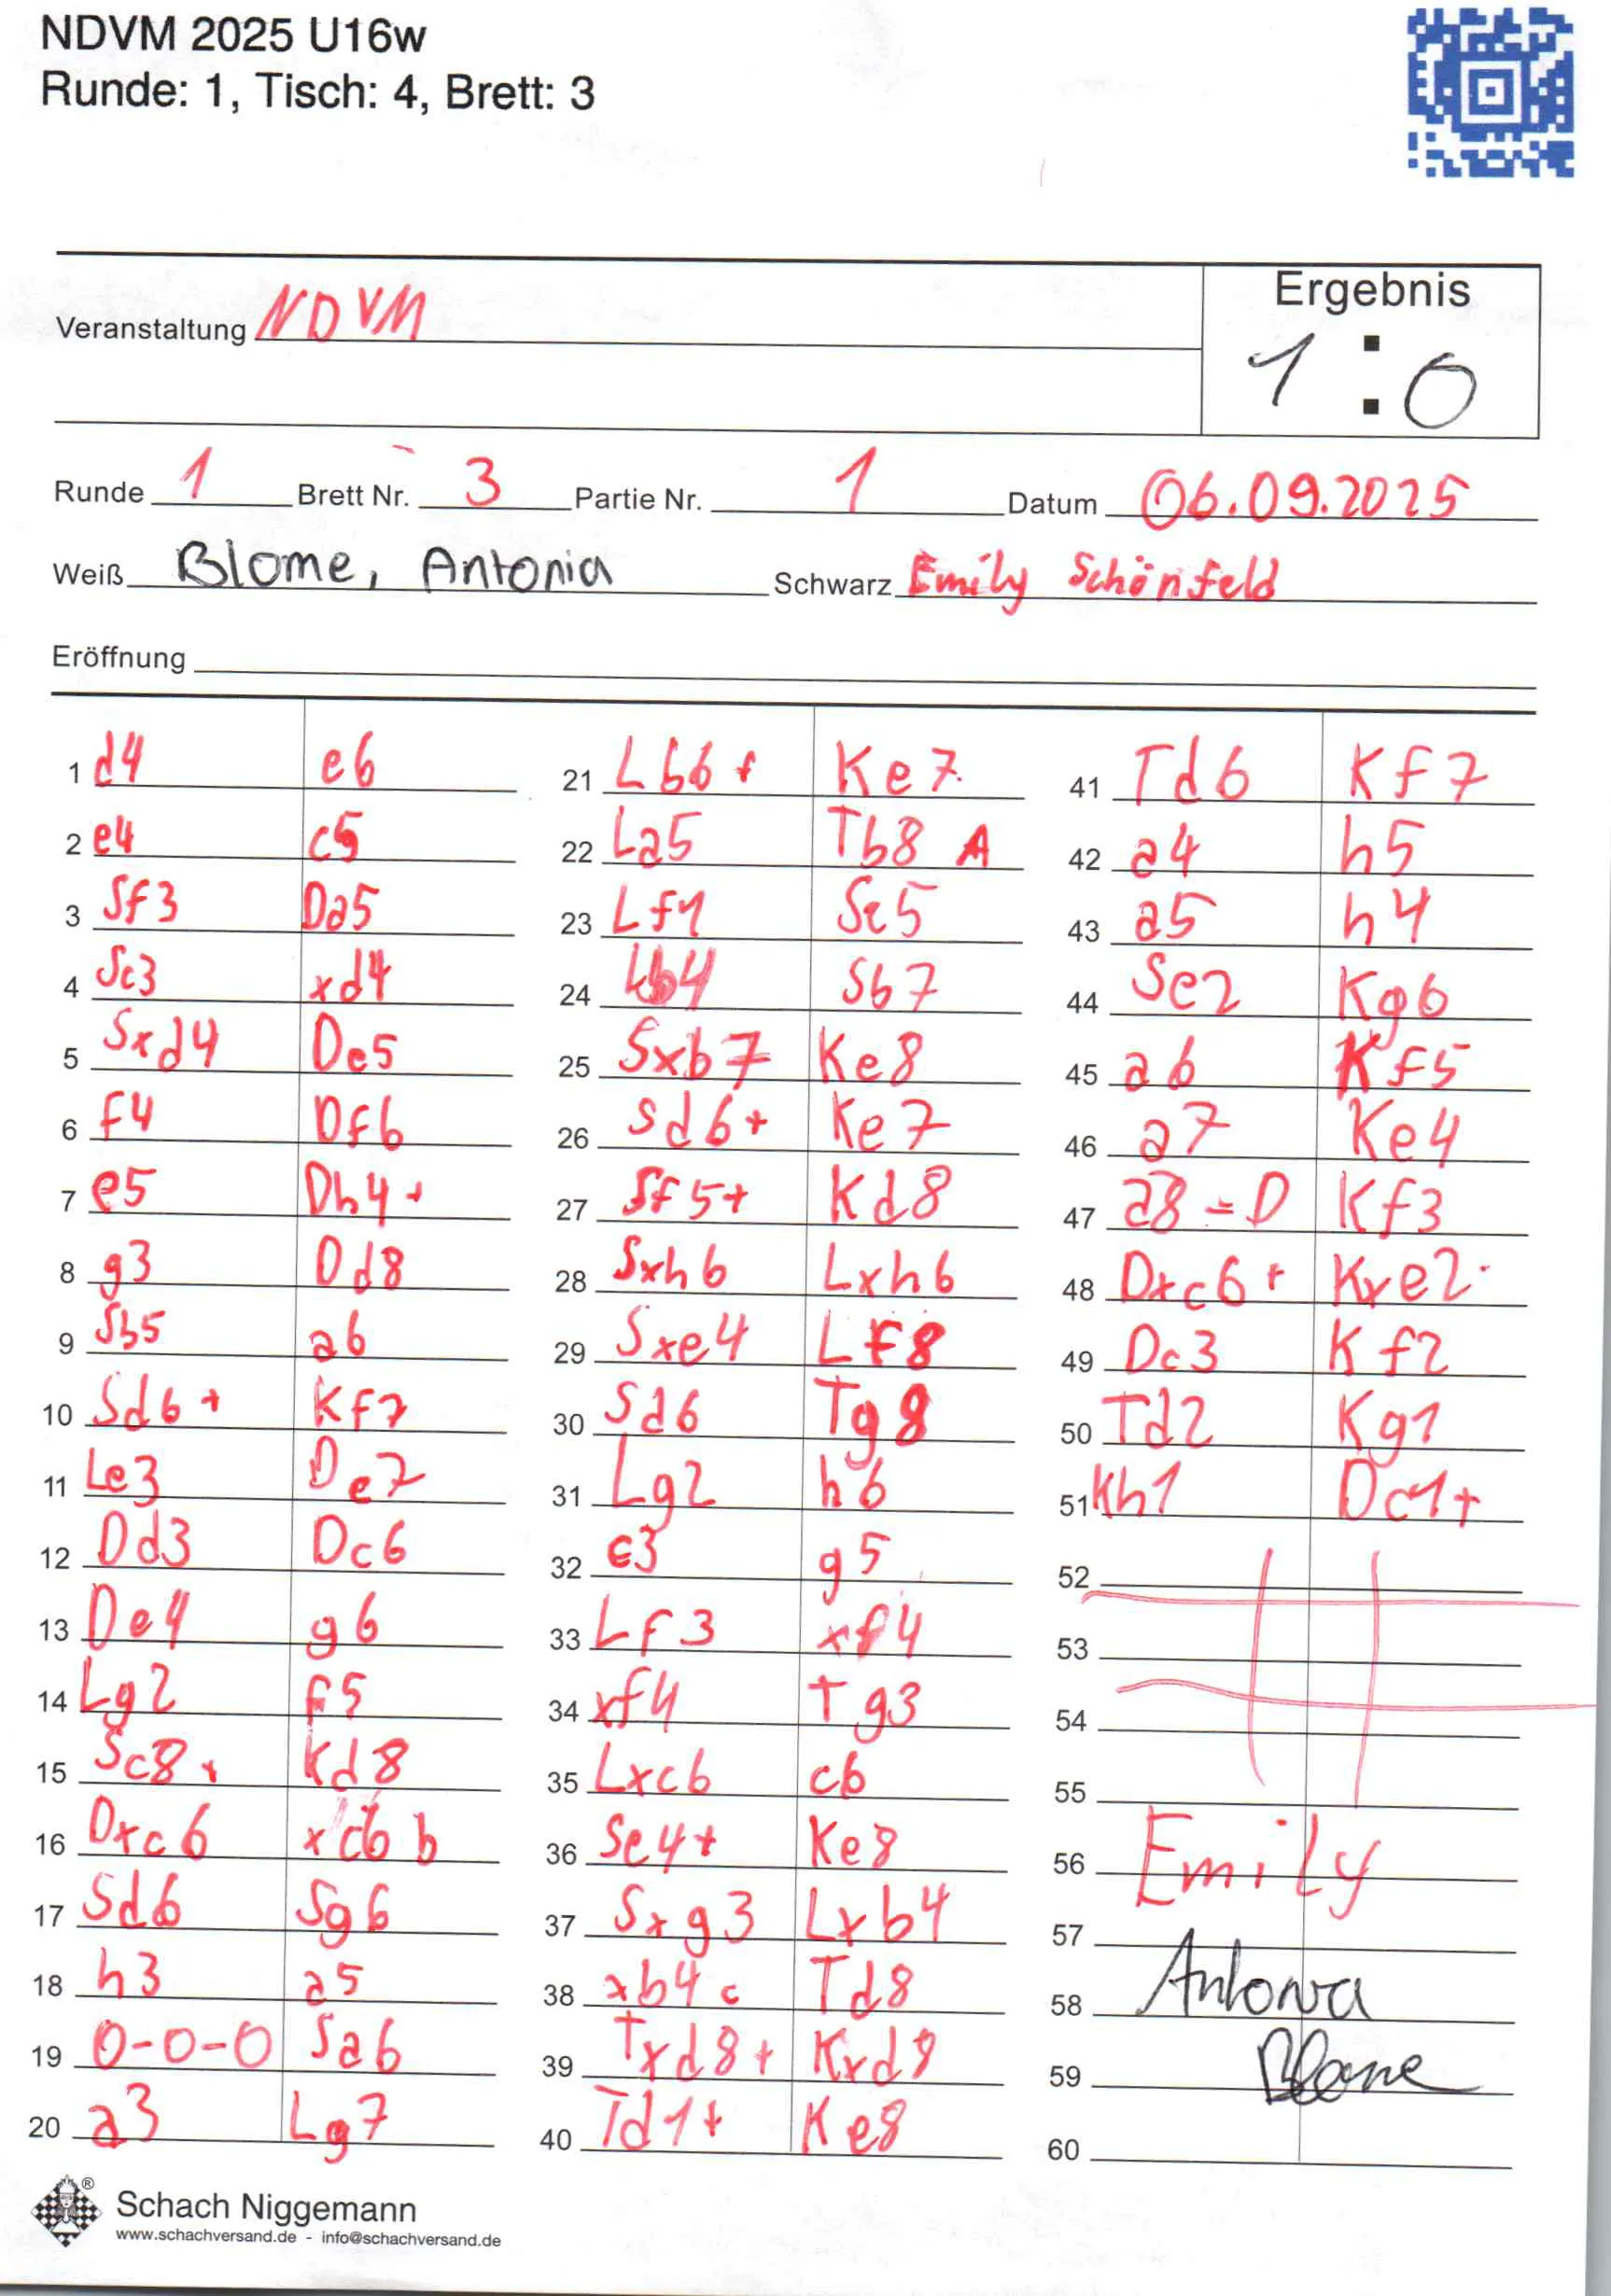 NDVM 2025 U16w
Runde: 1, Tisch: 4, Brett: 3
Veranstaltung NDVM
Ergebnis
1 : 0
Runde 1 Brett Nr. 3 Partie Nr. 1 Datum 06.09.2025
Weiß Blome, Antonia Schwarz Emily Schönfeld
Eröffnung
1 d4 e6
2 e4 c5
3 Sf3 Da5
4 Sc3 xd4
5 Sxd4 De5
6 f4 Df6
7 e5 Dh4+
8 g3 Dd8
9 Sb5 a6
10 Sd6+ Kf7
11 Le3 De7
12 Dd3 Dc6
13 De4 g6
14 Lg2 f5
15 Sc8+ Kd8
16 Dxc6 xc6 b
17 Sd6 Sg6
18 h3 a5
19 0-0-0 Sa6
20 a3 Lg7
21 Lb6+ Ke7
22 La5 Tb8 A
23 Lf1 Sc5
24 Lb4 Sb7
25 Sxb7 Ke8
26 Sd6+ Ke7
27 Sf5+ Kd8
28 Sxh6 Lxh6
29 Sxe4 Lf8
30 Sd6 Tg8
31 Lg2 h6
32 c3 g5
33 Lf3 xf4
34 xf4 Tg3
35 Lxc6 c6
36 Se4+ Ke8
37 Sxg3 Lxb4
38 xb4 c Td8
39 Txd8+ Kxd8
40 Td1+ Ke8
41 Td6 Kf7
42 a4 h5
43 a5 h4
44 Se2 Kg6
45 a6 Kf5
46 a7 Ke4
47 a8=D Kf3
48 Dxc6+ Kxe2
49 Dc3 Kf2
50 Td2 Kg1
51 Kh1 Dc1+
52
53
54
55
56 Emily
57
58 Antonia
59 Blome
60
Schach Niggemann
www.schachversand.de - info@schachversand.de